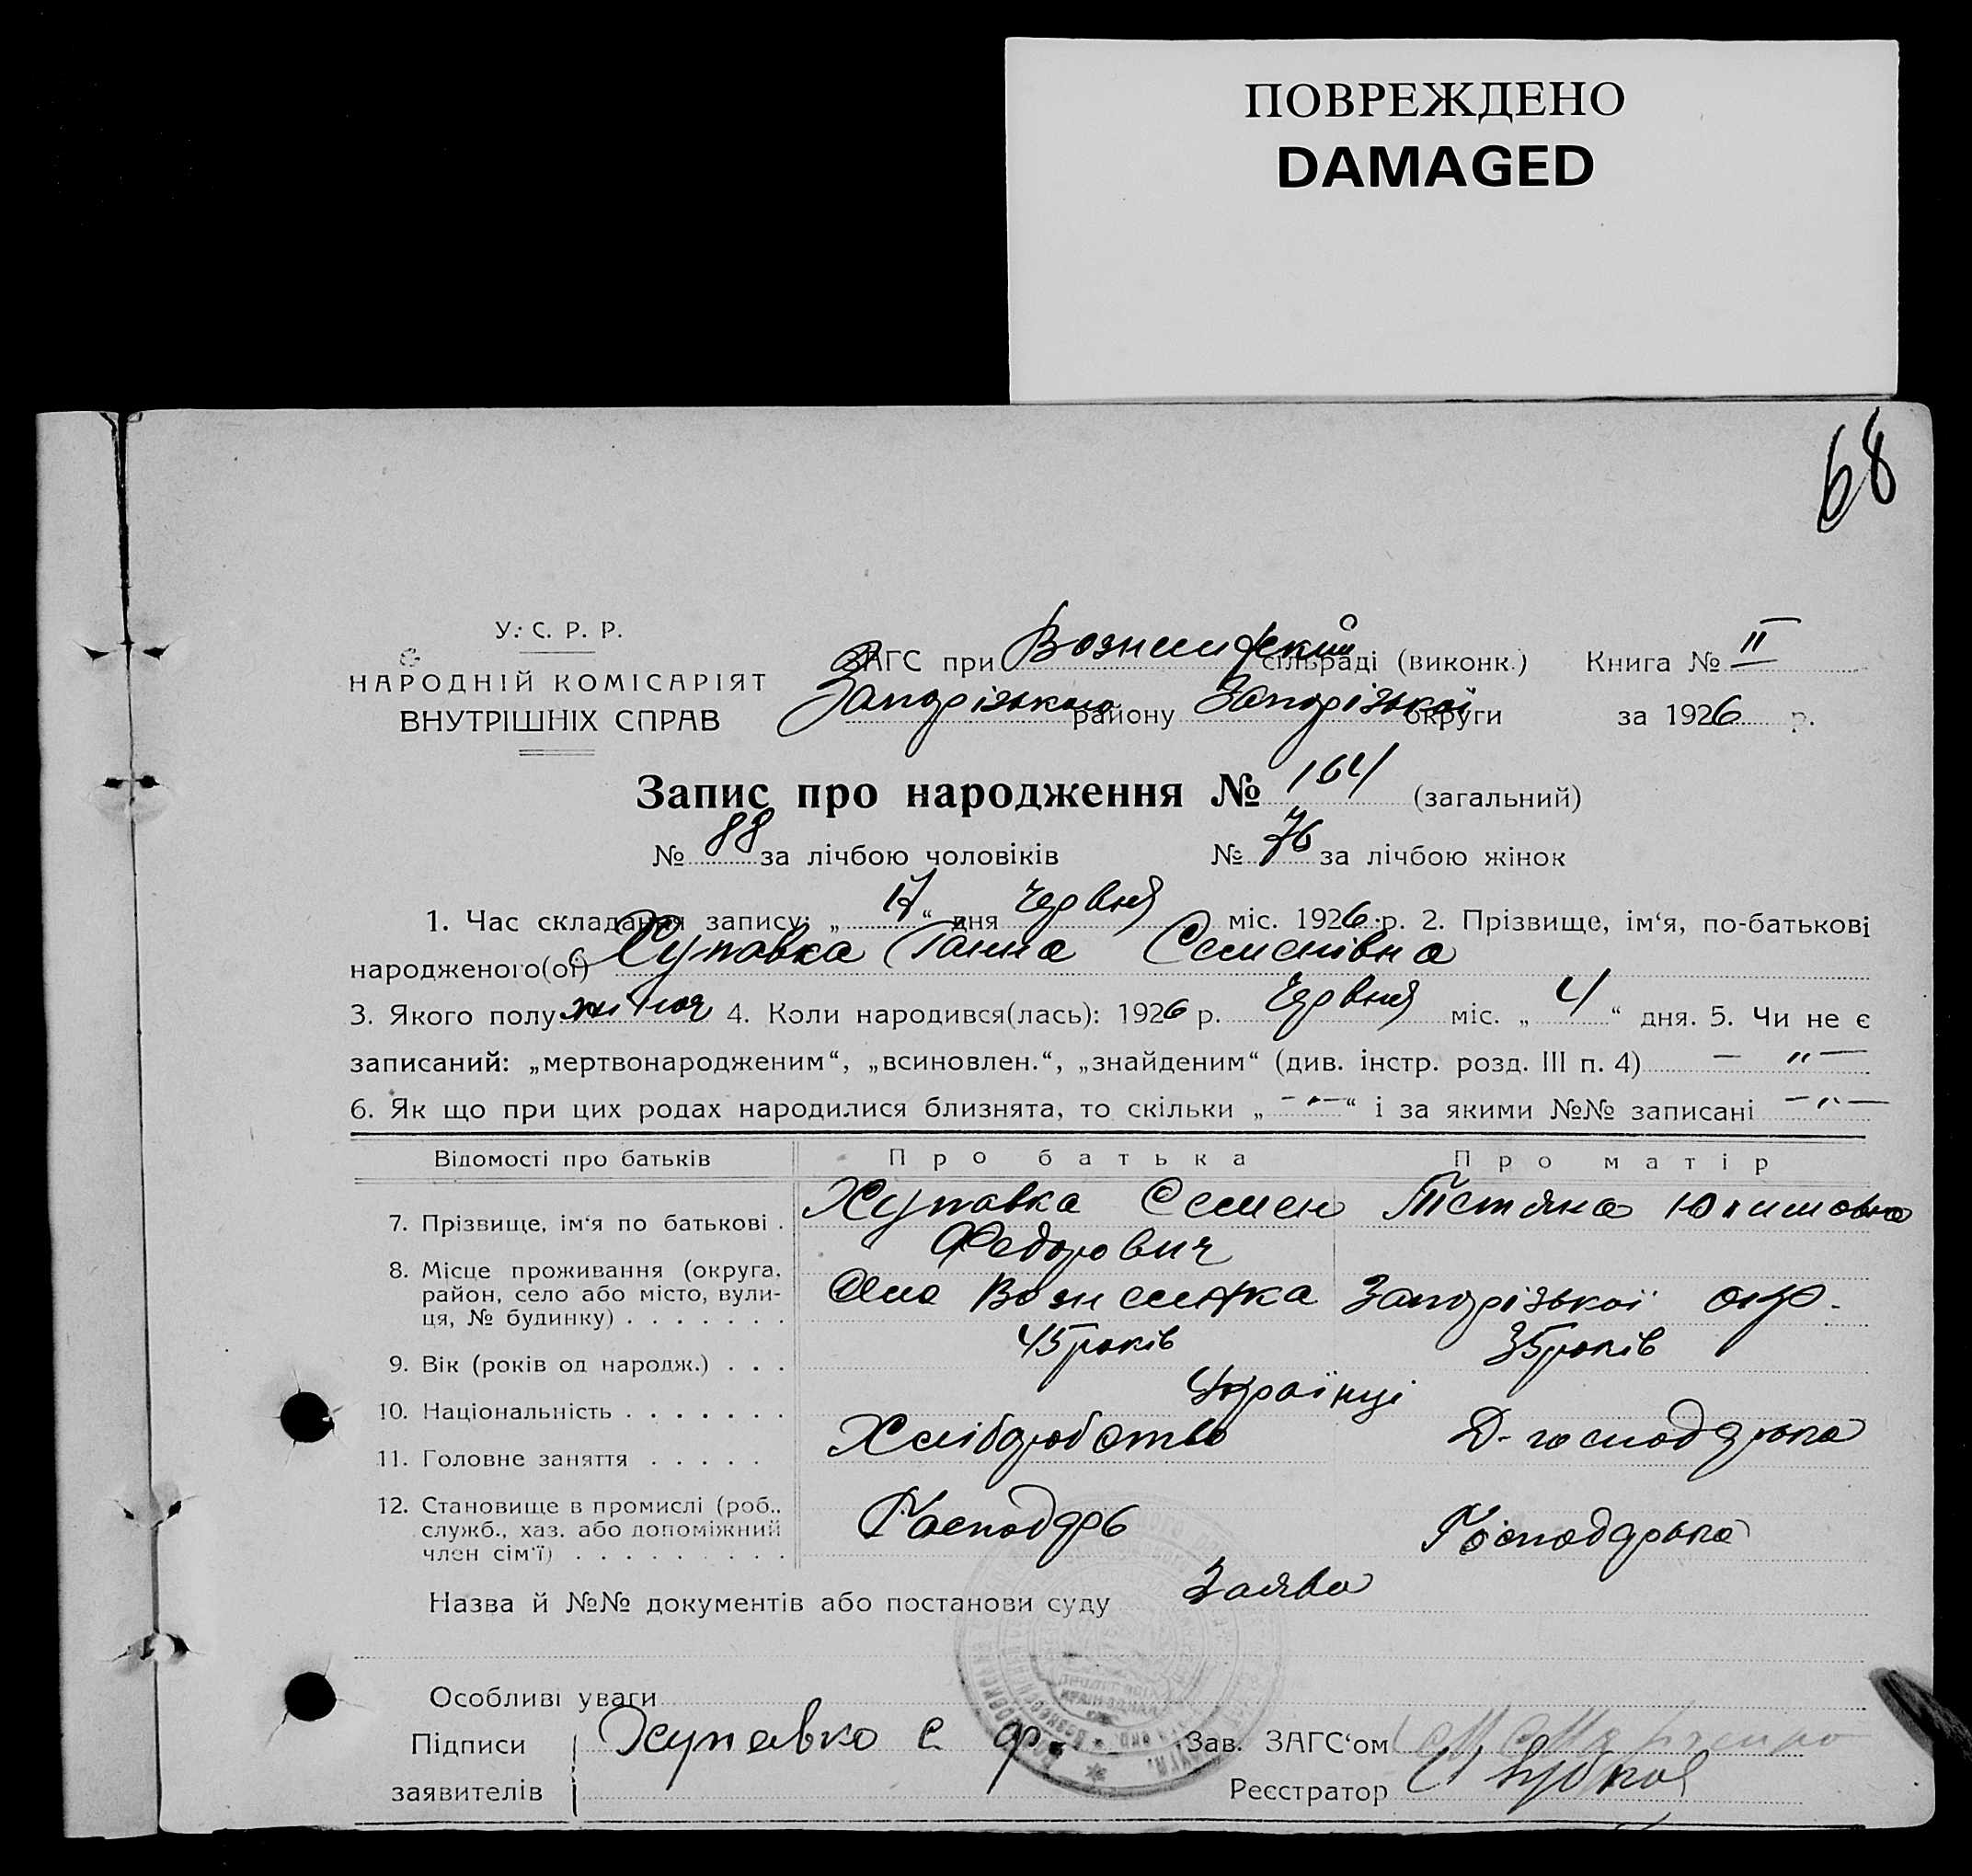 ПОВРЕЖДЕНО
DAMAGED
68
У. С. Р. Р.
НАРОДНІЙ КОМІСАРІЯТ
ВНУТРІШНІХ СПРАВ
ЗАГС при сільраді (виконк.) Книга № II
Запорізького району Запорізької округи за 1926 р.
Запис про народження № 164 (загальний)
№ 88 за лічбою чоловіків № 76 за лічбою жінок
1. Час складання запису: „17“ дня червня міс. 1926 р. 2. Прізвище, ім‘я, по-батькові
народженого(ої) Хупавка Ганна Семенівна
3. Якого полу жіноч 4. Коли народився(лась): 1926 р. Червня міс. „4“ дня. 5. Чи не є
записаний: „мертвонародженим“, „всиновлен.“, „знайденим“ (див. інстр. розд. III п. 4) — „ —
6. Як що при цих родах народилися близнята, то скільки „—„—“ і за якими №№ записані —„—
Відомості про батьків Про батька Про матір
7. Прізвище, ім‘я по батькові . Хупавка Семен Федорович Тетяна Юхимовна
8. Місце проживання (округа, район, село або місто, вулиця, № будинку) . . . . . . . Запорізької окр.
9. Вік (років од народж.) . . . 45 років 35 років
10. Національність . . . . . . . Українці
11. Головне заняття . . . . . Хліборобство Д-господарка
12. Становище в промислі (роб., служб., хаз. або допоміжний член сім‘ї) . . . . . . . . . Господарь Господарька
Назва й №№ документів або постанови суду Заява
Особливі уваги
Підписи заявителів Хупавка С Ф.
Зав. ЗАГС‘ом
Реєстратор